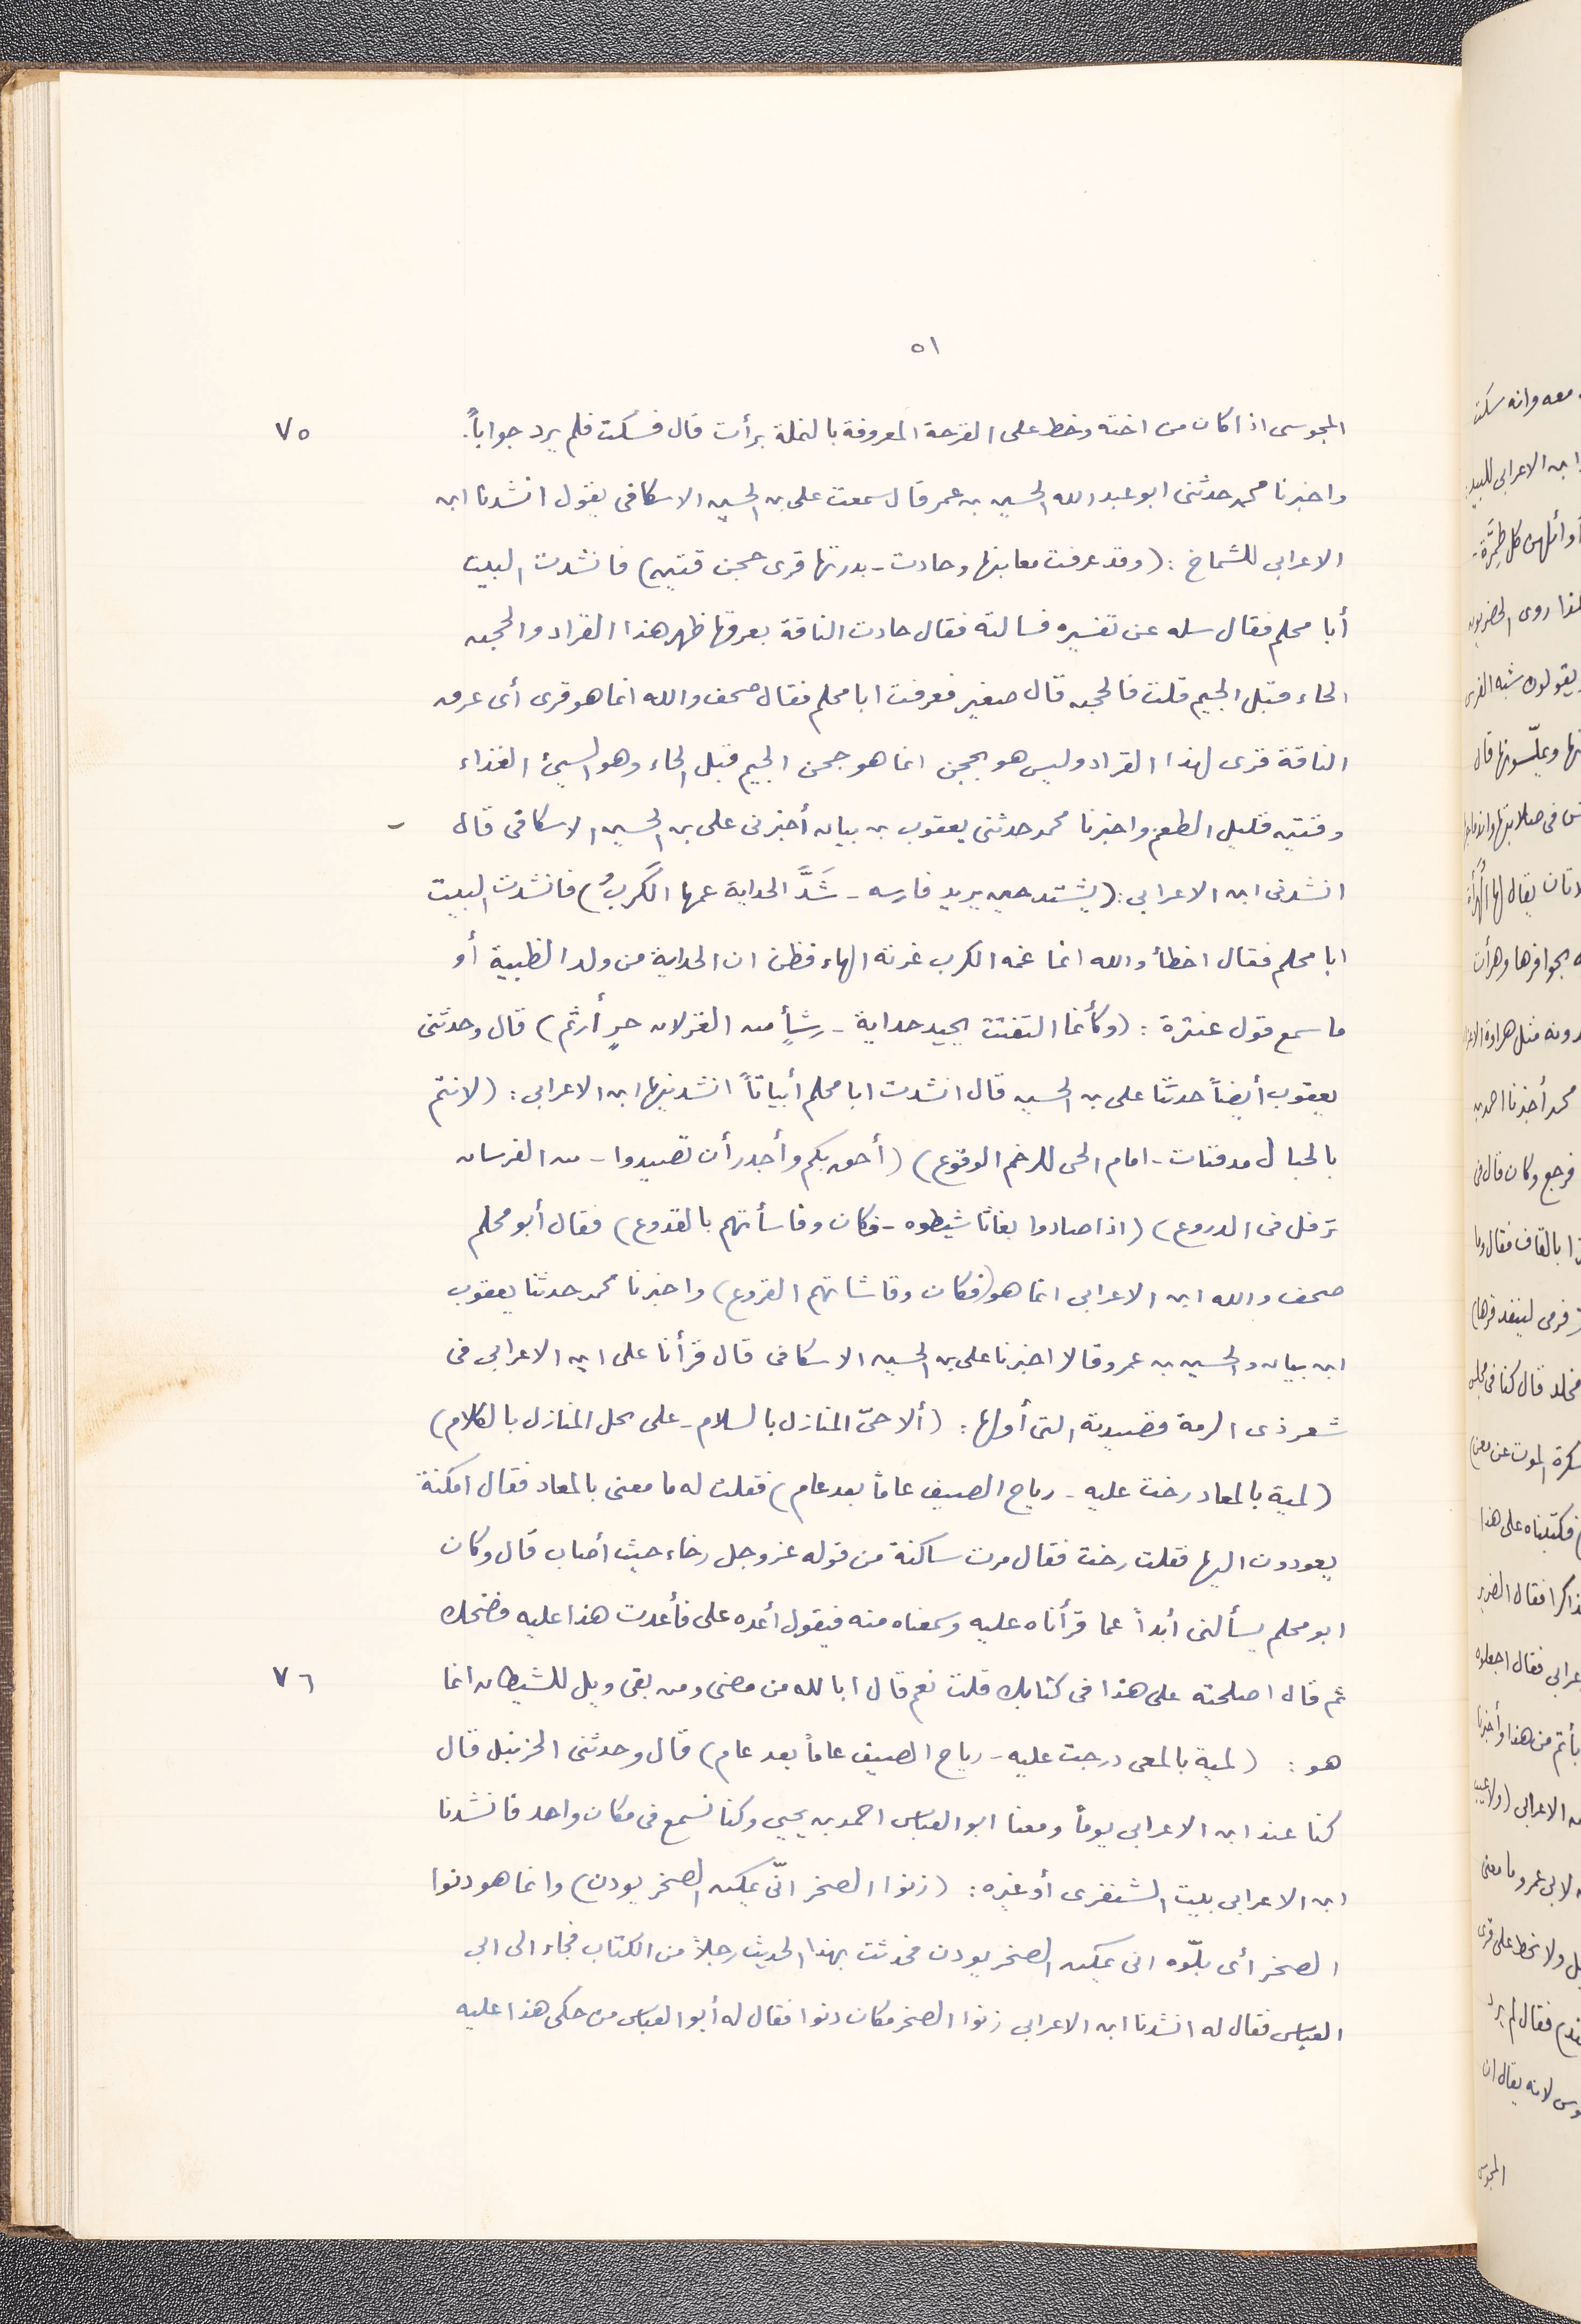 ٥١
المجوسى اذا كان من اخته وخط على القرحة المعروفة بالنملة برأت قال فسكت فلم يرد جواباً. ٧٥
واخبرنا محمد حدثنى ابو عبد الله الحسين بن عمر قال سمعت على بن الحسين الاسكافى يقول انشدنا ابن
الاعرابى للشماخ : (وقد عرقت مغابنها وجادت - بدرتها قرى حجن قتين) فانشدت البيت
أبا محلم فقال سله عن تفسيره فسالته فقال جادت الناقة بعرقها ظهر هذا القراد والحجن
الحاء قبل الجيم قلت فالحجن قال صغير فعرفت ابا محلم فقال صحف والله انما هو قرى أى عرق
الناقة قرى لهذا القراد وليس هو بحجن انما هو جحن الجيم قبل الحاء وهو السيئ الغذاء
وقتين قليل الطعم واخبرنا محمد حدثنى يعقوب بن بيان أخبرنى على بن الحسين الاسكافى قال
انشدنى ابن الاعرابى : (يشتد حين يريد فارسه - شَدَّ الجداية عمها الكربُ) فانشدت البيت
ابا محلم فقال اخطأ والله انما غمه الكرب غرته الهاء فظن ان الجداية من ولد الظبية أو
ما سمع قول عنترة : (وكأنما التفتت بجيد جداية - رشأٍ من الغزلان حرٍ أرثم) قال وحدثنى
يعقوب أيضاً حدثنا على بن الحسين قال انشدت ابا محلم أبياتاً انشدنيها ابن الاعرابى : (لانتم
بالحبال مدفنات - امام الحى للرخم الوقوع) (أحق بكم وأجدر أن تصيدوا - من الفرسان
ترفل فى الدروع) (اذا صادوا بغاثا شيطوه - فكان وفا سأتهم بالقدوع) فقال أبو محلم
صحف والله ابن الاعرابى انما هو (فكان وفا شاتهم القروع) واخبرنا محمد حدثنا يعقوب
ابن بيان والحسين بن عمر وقالا اخبرنا على بن الحسين الاسكافى قال قرأنا على ابن الاعرابى فى
شعر ذى الرمة قصيدته التى أولها : (ألا حىّ المنازل بالسلام - على بخل المنازل بالكلام)
(لمية بالمعاد رخت عليه - رياح الصيف عاماً بعد عام) فقلت له ما معنى بالمعاد فقال امكنة
يعودون اليها فقلت رخت فقال مرت ساكنة من قوله عز وجل رخاء حيث أصاب قال وكان
ابو محلم يسألنى أبداً عما قرأناه عليه وسمعناه منه فيقول أعده على فأعدت هذا عليه فضحك
ثم قال اصلحته على هذا فى كتابك قلت نعم قال ابا لله من مضى ومن بقى ويل للشيطان انما ٧٦
هو : (لمية بالمعى درجت عليه - رياح الصيف عاماً بعد عام) قال وحدثنى الحزنبل قال
كنا عند ابن الاعرابى يوماً ومعنا ابو العباس احمد بن يحيى وكنا نسمع فى مكان واحد فانشدنا
ابن الاعرابى بيت الشنفرى أو غيره : (زنوا الصخر انّى يمكن الصخر يودن) وانما هو دنوا
الصخر أى بلّوه انى يمكن الصخر يودن فحدثت بهذا الحديث رجلاً من الكتاب فجاء الى ابى
العباس فقال له انشدنا ابن الاعرابى زنوا الصخر مكان دنوا فقال له أبو العباس من حكى هذا عليه